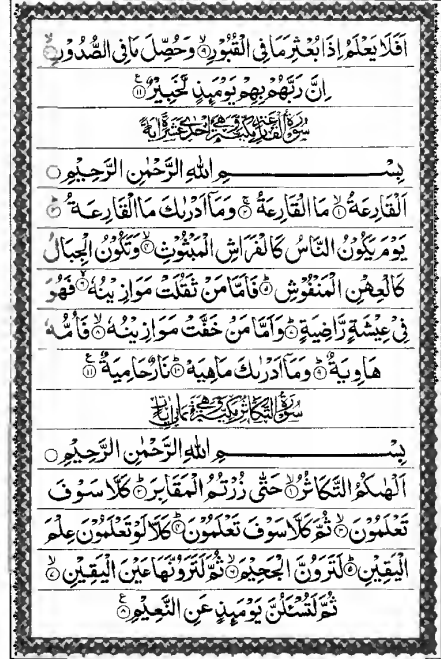 اَفَلَا يَعْلَمُ اِذَا بُعْثِرَ مَا فِى الْقُبُوْرِ ۙ﴿۹﴾ وَحُصِّلَ مَا فِى الصُّدُوْرِ ۙ﴿۱۰﴾
اِنَّ رَبَّهُمْ بِهِمْ يَوْمَىِٕذٍ لَّخَبِيْرٌ ﴿۱۱﴾ ع
سُوْرَةُ الْقَارِعَةِ مَكِّيَّةٌ وَّهِىَ اِحْدٰى عَشْرَةَ اٰيَةً
بِسْــــــــــــمِ اللهِ الرَّحْمٰنِ الرَّحِيْمِ ○
اَلْقَارِعَةُ ۙ﴿۱﴾ مَا الْقَارِعَةُ ۚ﴿۲﴾ وَمَآ اَدْرٰىكَ مَا الْقَارِعَةُ ؕ﴿۳﴾
يَوْمَ يَكُوْنُ النَّاسُ كَالْفَرَاشِ الْمَبْثُوْثِ ۙ﴿۴﴾ وَتَكُوْنُ الْجِبَالُ
كَالْعِهْنِ الْمَنْفُوْشِ ؕ﴿۵﴾ فَاَمَّا مَنْ ثَقُلَتْ مَوَازِيْنُهٗ ۙ﴿۶﴾ فَهُوَ
فِىْ عِيْشَةٍ رَّاضِيَةٍ ؕ﴿۷﴾ وَاَمَّا مَنْ خَفَّتْ مَوَازِيْنُهٗ ۙ﴿۸﴾ فَاُمُّهٗ
هَاوِيَةٌ ؕ﴿۹﴾ وَمَآ اَدْرٰىكَ مَاهِيَهْ ؕ﴿۱۰﴾ نَارٌ حَامِيَةٌ ﴿۱۱﴾ ع
سُوْرَةُ التَّكَاثُرِ مَكِّيَّةٌ وَّهِىَ ثَمَانِىْ اٰيَاتٍ
بِسْــــــــــــمِ اللهِ الرَّحْمٰنِ الرَّحِيْمِ ○
اَلْهٰىكُمُ التَّكَاثُرُ ۙ﴿۱﴾ حَتّٰى زُرْتُمُ الْمَقَابِرَ ؕ﴿۲﴾ كَلَّا سَوْفَ
تَعْلَمُوْنَ ۙ﴿۳﴾ ثُمَّ كَلَّا سَوْفَ تَعْلَمُوْنَ ؕ﴿۴﴾ كَلَّا لَوْ تَعْلَمُوْنَ عِلْمَ
الْيَقِيْنِ ؕ﴿۵﴾ لَتَرَوُنَّ الْجَحِيْمَ ۙ﴿۶﴾ ثُمَّ لَتَرَوُنَّهَا عَيْنَ الْيَقِيْنِ ۙ﴿۷﴾
ثُمَّ لَتُسْـَٔلُنَّ يَوْمَىِٕذٍ عَنِ النَّعِيْمِ ﴿۸﴾ ع